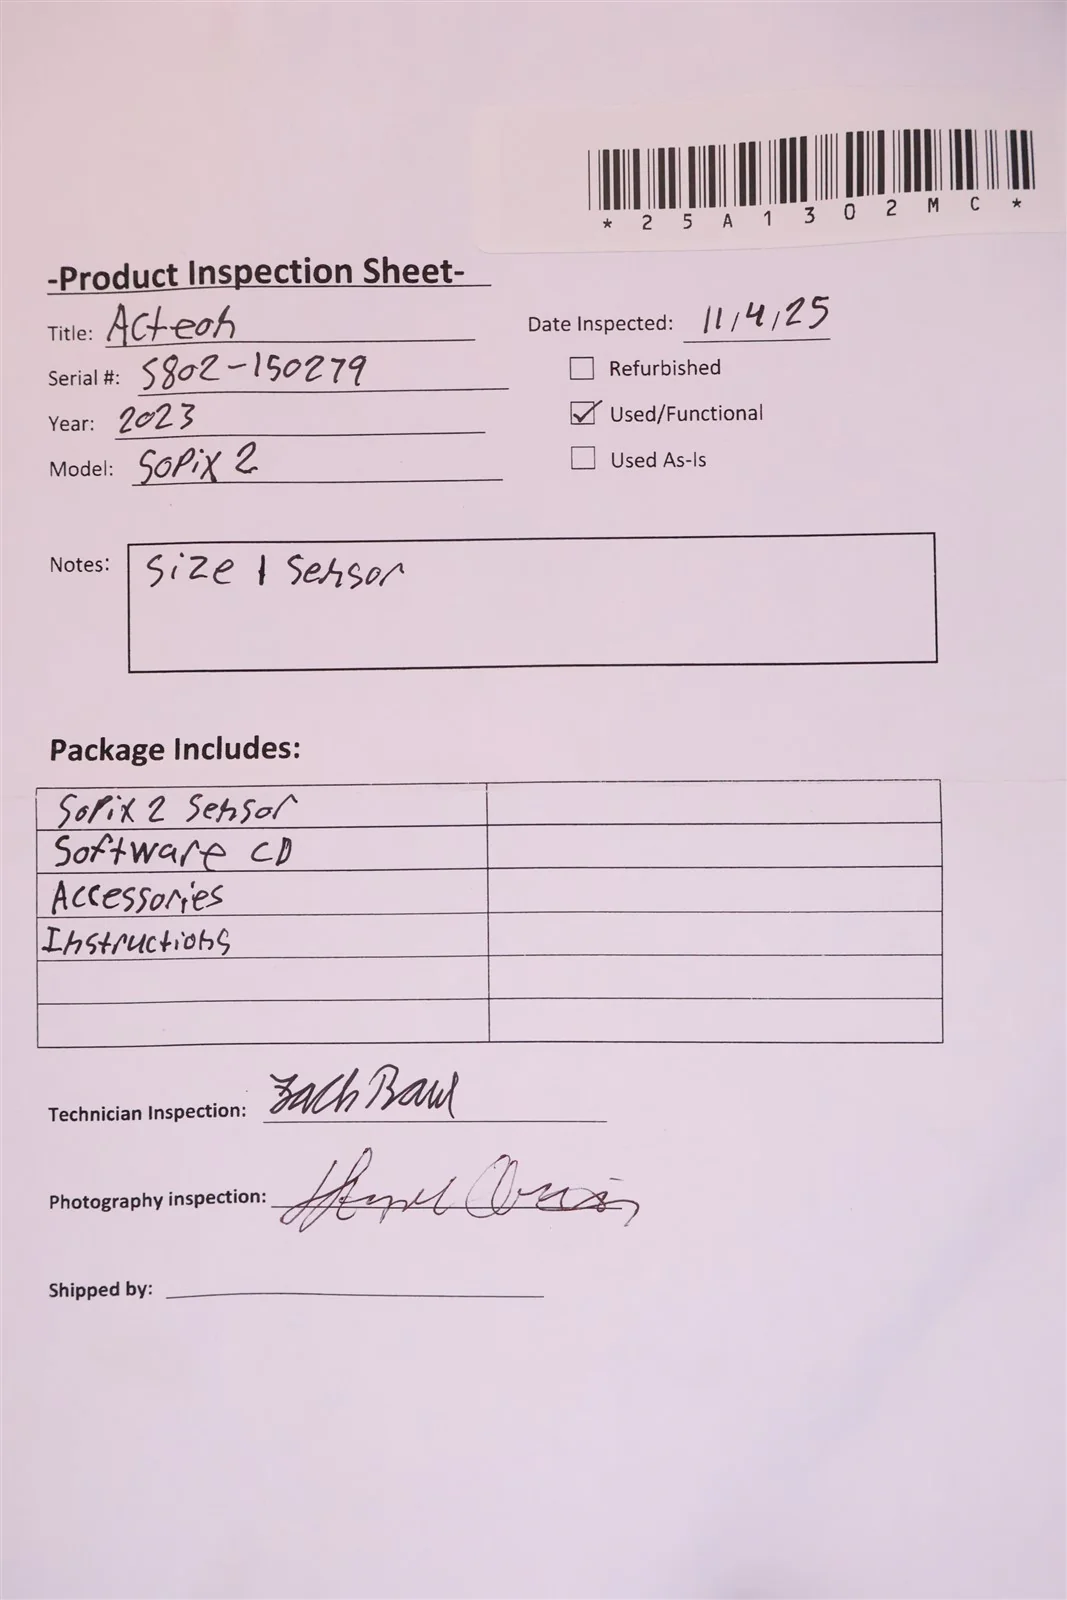 *25A1302MC*
-Product Inspection Sheet-
Title: Acteon
Date Inspected: 11/4/25
Serial #: S802-150279
Refurbished
Year: 2023
Used/Functional
Model: SOPiX 2
Used As-Is
Notes: Size 1 Sensor
Package Includes:
SoPiX 2 Sensor
Software CD
Accessories
Instructions
Technician Inspection: Zach
Photography inspection:
Shipped by: